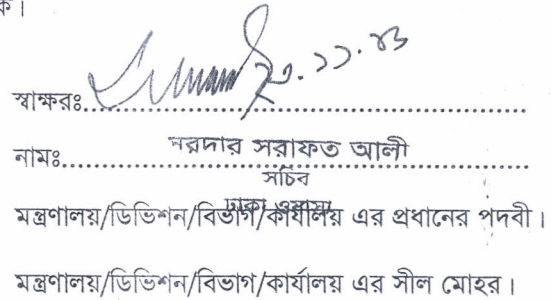 ক।
স্বাক্ষরঃ........................................
২০.১১.৪৩
নামঃ........................................
সরদার সরাফত আলী
সচিব
ঢাকা ওয়াসা
মন্ত্রণালয়/ডিভিশন/বিভাগ/কার্যালয় এর প্রধানের পদবী।
মন্ত্রণালয়/ডিভিশন/বিভাগ/কার্যালয় এর সীল মোহর।